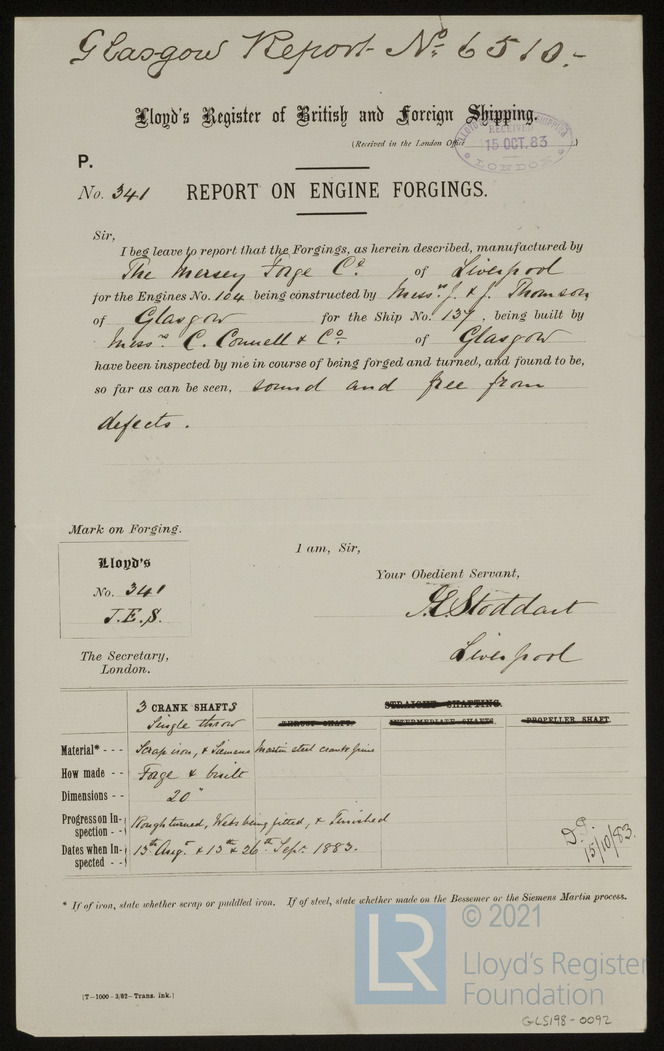 Glasgow Report No 6510.-
Lloyd's Register of British and Foreign Shipping.
(Received in the London Office
LLOYD'S SHIPPING
RECEIVED
15 OCT. 83
LONDON
P.
No. 341 REPORT ON ENGINE FORGINGS.
Sir,
I beg leave to report that the Forgings, as herein described, manufactured by
The Mersey Forge Co. of Liverpool
for the Engines No. 104 being constructed by Messrs J. & J. Thomson
of Glasgow for the Ship No. 137, being built by
Messrs C. Connell & Co. of Glasgow
have been inspected by me in course of being forged and turned, and found to be,
so far as can be seen, sound and free from
defects.
Mark on Forging.
Lloyd's
No. 341
J.E.S.
I am, Sir,
Your Obedient Servant,
J.E. Stoddart
Liverpool
The Secretary,
London.
3 CRANK SHAFTS
Single throw
STRAIGHT SHAFTING
THRUST SHAFT. INTERMEDIATE SHAFTS PROPELLER SHAFT
Material* - - - Scrap iron, & Siemens Martin steel crank pins
How made - - Forge & built
Dimensions - - 20"
Progress on Inspection - - Rough turned, Webs being fitted, & Finished
Dates when Inspected - - 13th Augt. & 13th & 26th Sept. 1883.
15/10/83.
* If of iron, state whether scrap or puddled iron. If of steel, state whether made on the Bessemer or the Siemens Martin process.
LR
© 2021
Lloyd's Register
Foundation
[T-1000-3/82-Trans. Ink.]
GLS198-0092